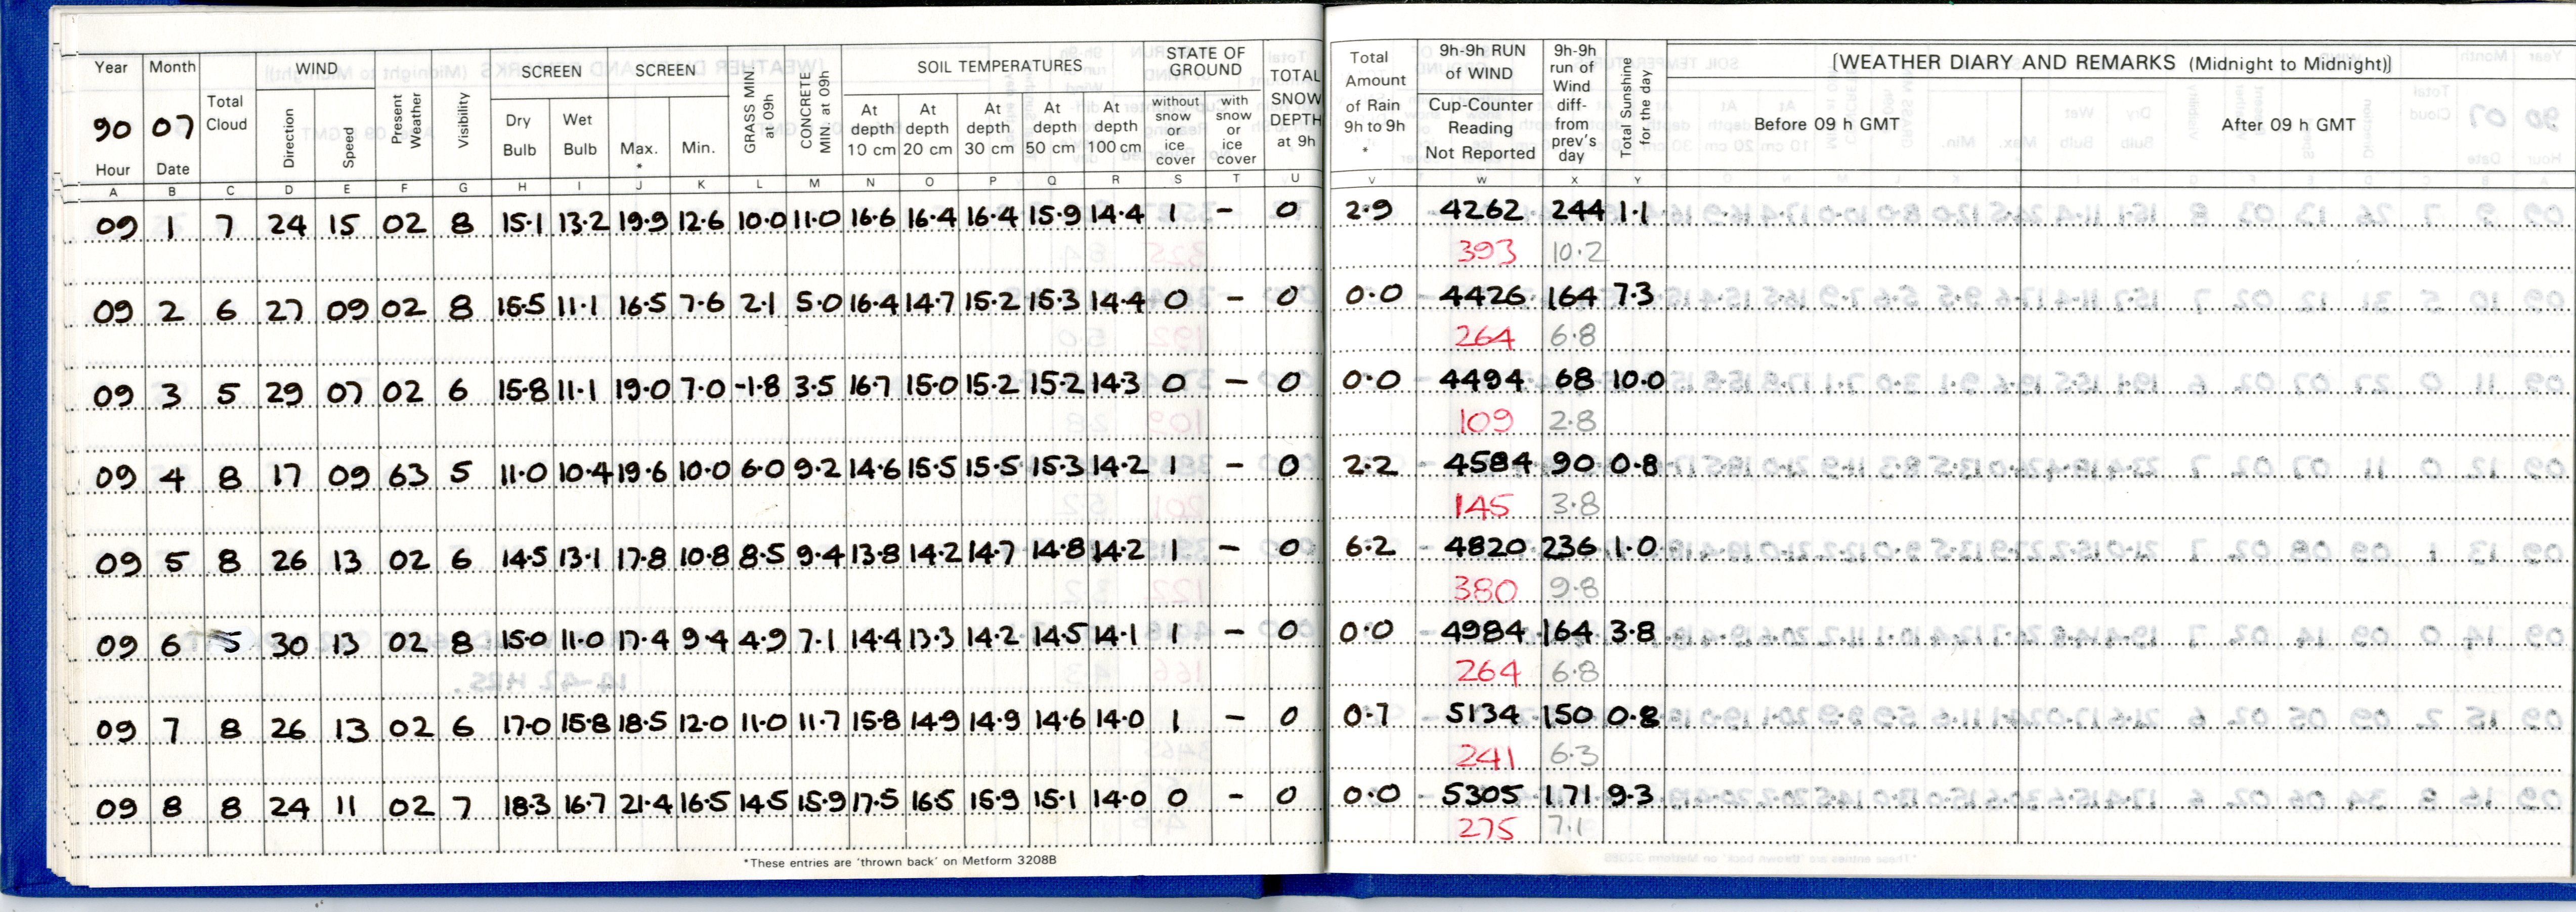 Year Month Total Cloud WIND Present Weather Visibility SCREEN SCREEN GRASS MIN. at 09h CONCRETE MIN. at 09h SOIL TEMPERATURES STATE OF GROUND TOTAL SNOW DEPTH at 9h Total Amount of Rain 9h to 9h * 9h-9h RUN of WIND 9h-9h run of Wind diff- from prev's day Total Sunshine for the day [WEATHER DIARY AND REMARKS (Midnight to Midnight)]
90 07 Direction Speed Dry Bulb Wet Bulb Max. * Min. At depth 10 cm At depth 20 cm At depth 30 cm At depth 50 cm At depth 100 cm without snow or ice cover with snow or ice cover Cup-Counter Reading Not Reported Before 09 h GMT After 09 h GMT
Hour Date
A B C D E F G H I J K L M N O P Q R S T U V W X Y
09 1 7 24 15 02 8 15.1 13.2 19.9 12.6 10.0 11.0 16.6 16.4 16.4 15.9 14.4 1 - 0 2.9 4262 244 1.1
393 10.2
09 2 6 27 09 02 8 15.5 11.1 16.5 7.6 2.1 5.0 16.4 14.7 15.2 15.3 14.4 0 - 0 0.0 4426 164 7.3
264 6.8
09 3 5 29 07 02 6 15.8 11.1 19.0 7.0 -1.8 3.5 16.7 15.0 15.2 15.2 14.3 0 - 0 0.0 4494 68 10.0
109 2.8
09 4 8 17 09 63 5 11.0 10.4 19.6 10.0 6.0 9.2 14.6 15.5 15.5 15.3 14.2 1 - 0 2.2 4584 90 0.8
145 3.8
09 5 8 26 13 02 6 14.5 13.1 17.8 10.8 8.5 9.4 13.8 14.2 14.7 14.8 14.2 1 - 0 6.2 4820 236 1.0
380 9.8
09 6 5 30 13 02 8 15.0 11.0 17.4 9.4 4.9 7.1 14.4 13.3 14.2 14.5 14.1 1 - 0 0.0 4984 164 3.8
264 6.8
09 7 8 26 13 02 6 17.0 15.8 18.5 12.0 11.0 11.7 15.8 14.9 14.9 14.6 14.0 1 - 0 0.7 5134 150 0.8
241 6.3
09 8 8 24 11 02 7 18.3 16.7 21.4 16.5 14.5 15.9 17.5 16.5 15.9 15.1 14.0 0 - 0 0.0 5305 171 9.3
275 7.1
*These entries are 'thrown back' on Metform 3208B